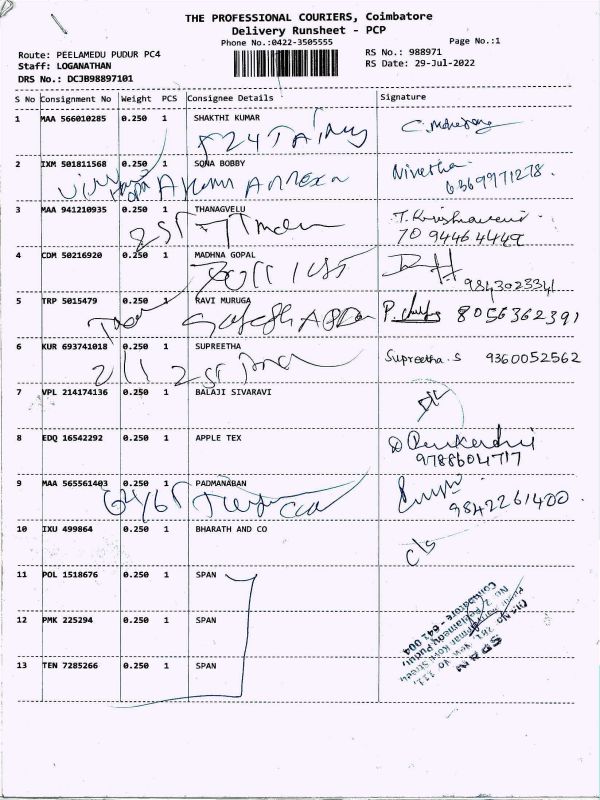 THE PROFESSIONAL COURIERS, Coimbatore
Delivery Runsheet - PCP
Phone No.:0422-3505555
Page No.:1
Route: PEELAMEDU PUDUR PC4
RS No.: 988971
Staff: LOGANATHAN
RS Date: 29-Jul-2022
DRS No.: DCJB98897101
S No Consignment No Weight PCS Consignee Details Signature
1 MAA 566010285 0.250 1 SHAKTHI KUMAR
2 IXM 501811568 0.250 1 SONA BOBBY
Nivetha.
6369971278.
3 MAA 941210935 0.250 1 THANAGVELU
70 9446 4449
4 COM 50216920 0.250 1 MADHNA GOPAL
9843023341
5 TRP 5015479 0.250 1 RAVI MURUGA
8056362391
6 KUR 693741018 0.250 1 SUPREETHA
Supreetha.S 9360052562
7 VPL 214174136 0.250 1 BALAJI SIVARAVI
8 EDQ 16542292 0.250 1 APPLE TEX
9788604717
9 MAA 565561403 0.250 1 PADMANABAN
9842261400
10 IXU 499864 0.250 1 BHARATH AND CO
c/s
11 POL 1518676 0.250 1 SPAN
12 PMK 225294 0.250 1 SPAN
13 TEN 7285266 0.250 1 SPAN
SPAN
Peelamedu Pudur,
Coimbatore - 641 004